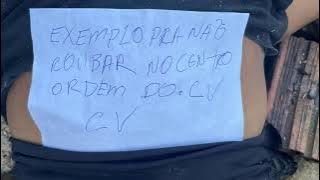 EXEMPLO PRA NAÕ
ROUBAR NO CENTO
ORDEM DO. CV
CV